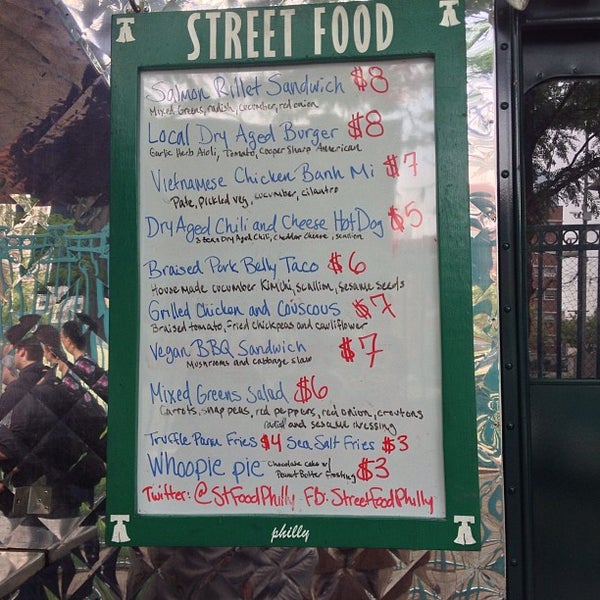 STREET FOOD
Salmon Rillet Sandwich $8
Mixed Greens, radish, cucumber, red onion
Local Dry Aged Burger $8
Garlic Herb Aioli, Tomato, Cooper Sharp American
Vietnamese Chicken Banh Mi $7
Pate, pickled veg, cucumber, cilantro
Dry Aged Chili and Cheese Hot Dog $5
3 bean Dry Aged Chili, cheddar cheese, scallion
Braised Pork Belly Taco $6
House made cucumber Kimchi, scallion, sesame seeds
Grilled Chicken and Couscous $7
Braised tomato, Fried chickpeas and cauliflower
Vegan BBQ Sandwich $7
Mushrooms and cabbage slaw
Mixed Greens Salad $6
Carrots, snap peas, red peppers, red onion, croutons
and sesame dressing
Truffle Parm Fries $4 Sea Salt Fries $3
Whoopie pie Chocolate cake w/ $3
Peanut Butter frosting
Twitter: @StFoodPhilly FB: StreetFoodPhilly
philly